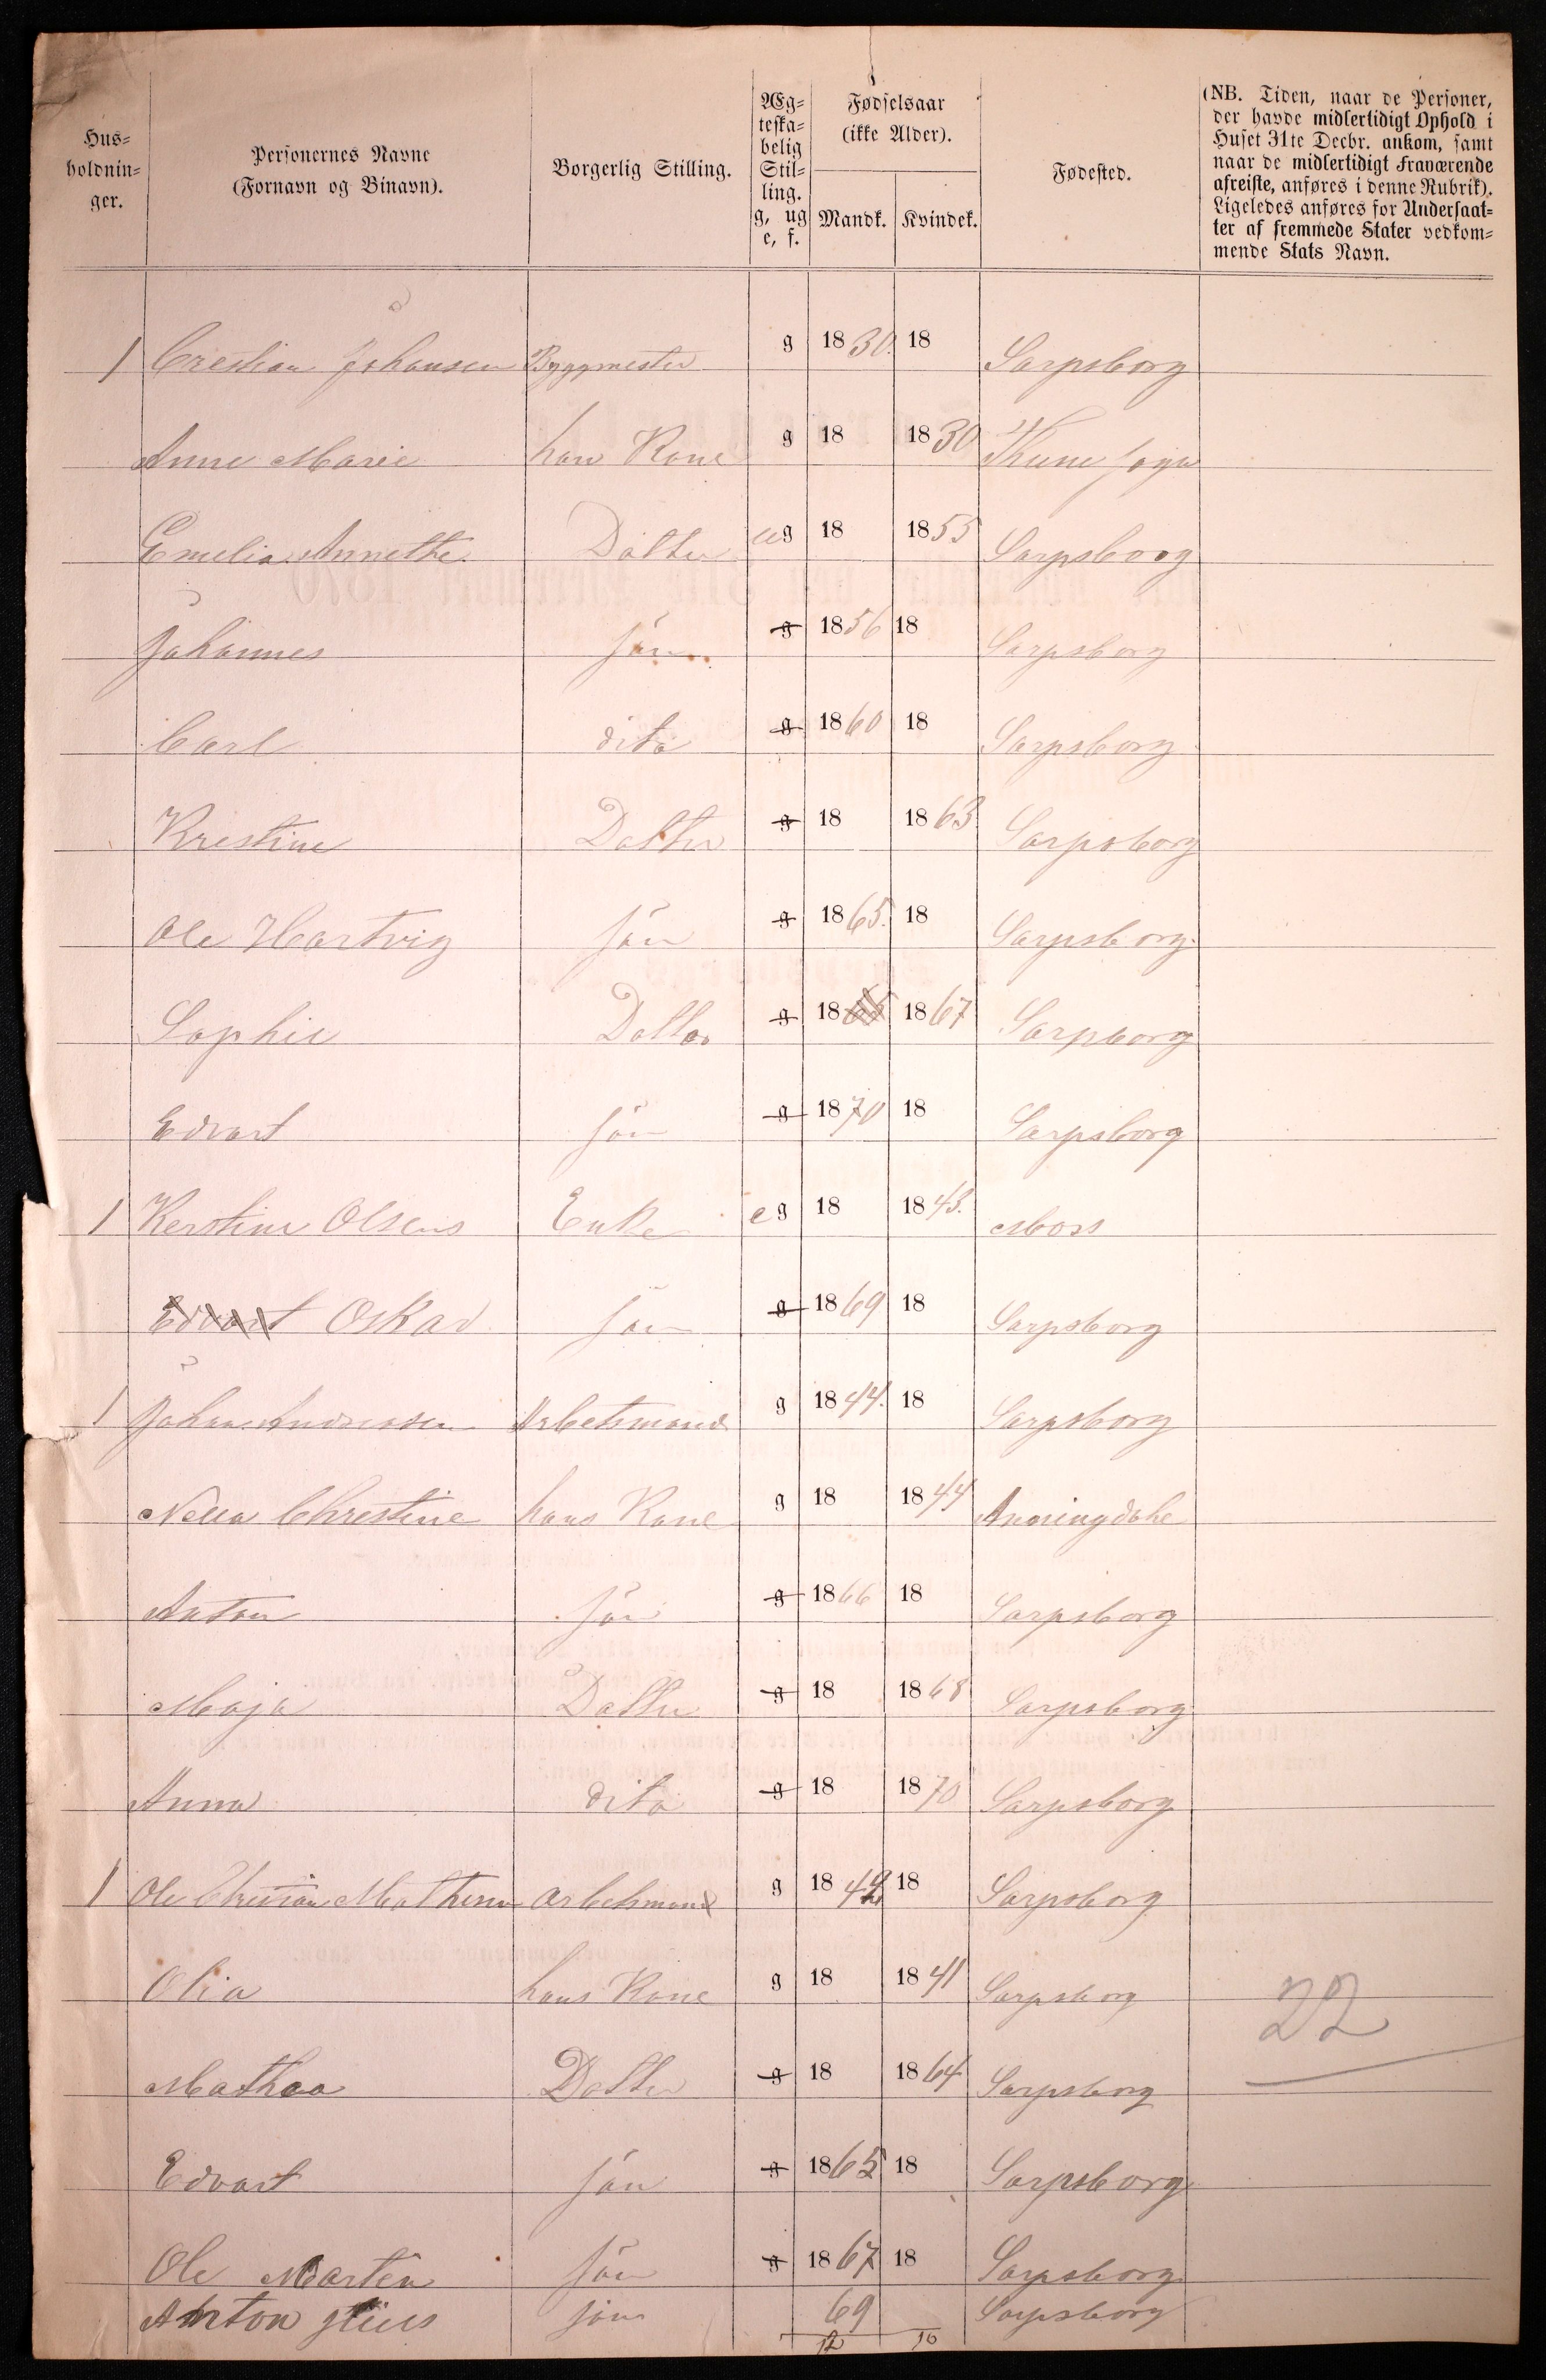 Hus-
holdnin-
ger.
Personernes Navne
(Fornavn og Binavn).
Borgerlig Stilling.
Æg-
teska-
belig
Stil-
ling.
g, ug
e, f.
Fødselsaar
(ikke Alder).
Mandk. Kvindek.
Fødested.
(NB. Tiden, naar de Personer,
der havde midlertidigt Ophold i
Huset 31te Decbr. ankom, samt
naar de midlertidigt fraværende
afreiste, anføres i denne Rubrik).
Ligeledes anføres for Undersaat-
ter af fremmede Stater vedkom-
mende Stats Navn.
1 Crestian Johansen Byggmester g 1830. 18 Sarpsborg
Anne Marie hans Kone g 18 1830 Thune sogn
Emelia Annethe Datter ug 18 1855 Sarpsborg
Johannes sön g 1856 18 Sarpsborg
Carl dito g 1860 18 Sarpsborg
Krestine Datter g 18 1863 Sarpsborg
Ole Hartvig sön g 1865. 18 Sarpsborg.
Sophie Datter g 1865 1867 Sarpborg
Edvart sön g 1870 18 Sarpsborg
1 Kerstine Olsens Enke eg 18 1843. Moss
Edvart Oskar sön g 1869 18 Sarpsborg
1 Johan Andreasen Arbetsmand g 1844. 18 Sarpsborg
Christine hans Kone g 18 1844
Anton sön g 1866 18 Sarpsborg
Maja Datter g 18 1868 Sarpsborg
Anna dito g 18 1870 Sarpsborg
1 Ole Christian Mathesen Arbetsmand g 1842 18 Sarpsborg
Olia hans Kone g 18 1841 Sarpsborg
Mathea Datter g 18 1864 Sarpsborg
Edvart sön g 1865 18 Sarpsborg
Ole Marten sön g 1867 18 Sarpsborg
Anton sön 69 Sarpsborg
12 10
22